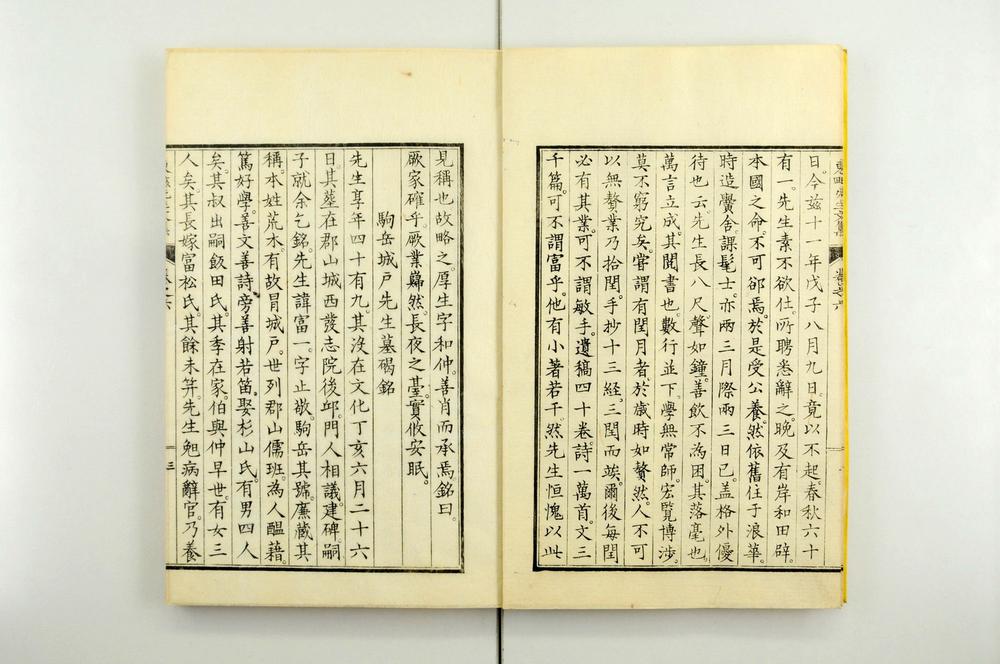 日。今茲十一年戊子八月九日。竟以不起。春秋六十
有一。先生素不欲仕。所聘悉辭之。晚及有岸和田辟。
本國之命。不可郤焉。於是受公養。然依舊住于浪華。
時造黌舍。課髦士。亦兩三月際兩三日已。盖格外優
待也云。先生長八尺。聲如鐘。善飲不為困。其落毫也。
萬言立成。其閱書也。數行並下。學無常師。宏覽博涉。
莫不窮究矣。嘗謂有閏月者。於歲時如贅然。人不可
以無贅業。乃拾閏。手抄十三經。三閏而竣。爾後每閏
必有其業。可不謂敏手。遺稿四十卷。詩一萬首。文三
千篇。可不謂富乎。他有小著若干。然先生恒愧以此
見稱也。故略之。厚生字和仲。善肖而承焉。銘曰。
厥家確乎。厥業巋然。長夜之臺。實攸安眠。
駒岳城戶先生墓碣銘
先生享年四十有九。其沒在文化丁亥六月二十六
日。其塋在郡山城西發志院後邱。門人相議建碑。嗣
子就余乞銘。先生諱富一。字止敬。駒岳其號。廡藏其
稱。本姓荒木。有故冒城戶。世列郡山儒班。為人醞藉。
篤好學。善文善詩。旁善射若笛。娶杉山氏。有男四人
矣。其叔出嗣飯田氏。其季在家。伯與仲早世。有女三
人矣。其長嫁富松氏。其餘未笄。先生勉病辭官。乃養